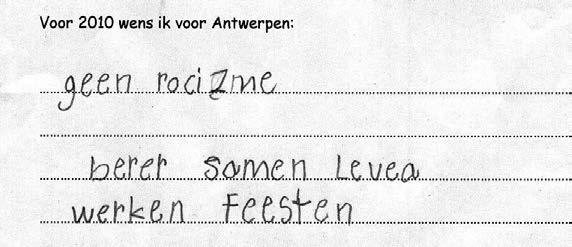 Voor 2010 wens ik voor Antwerpen:
geen rocizme
berer samen Levea
werken Feesten